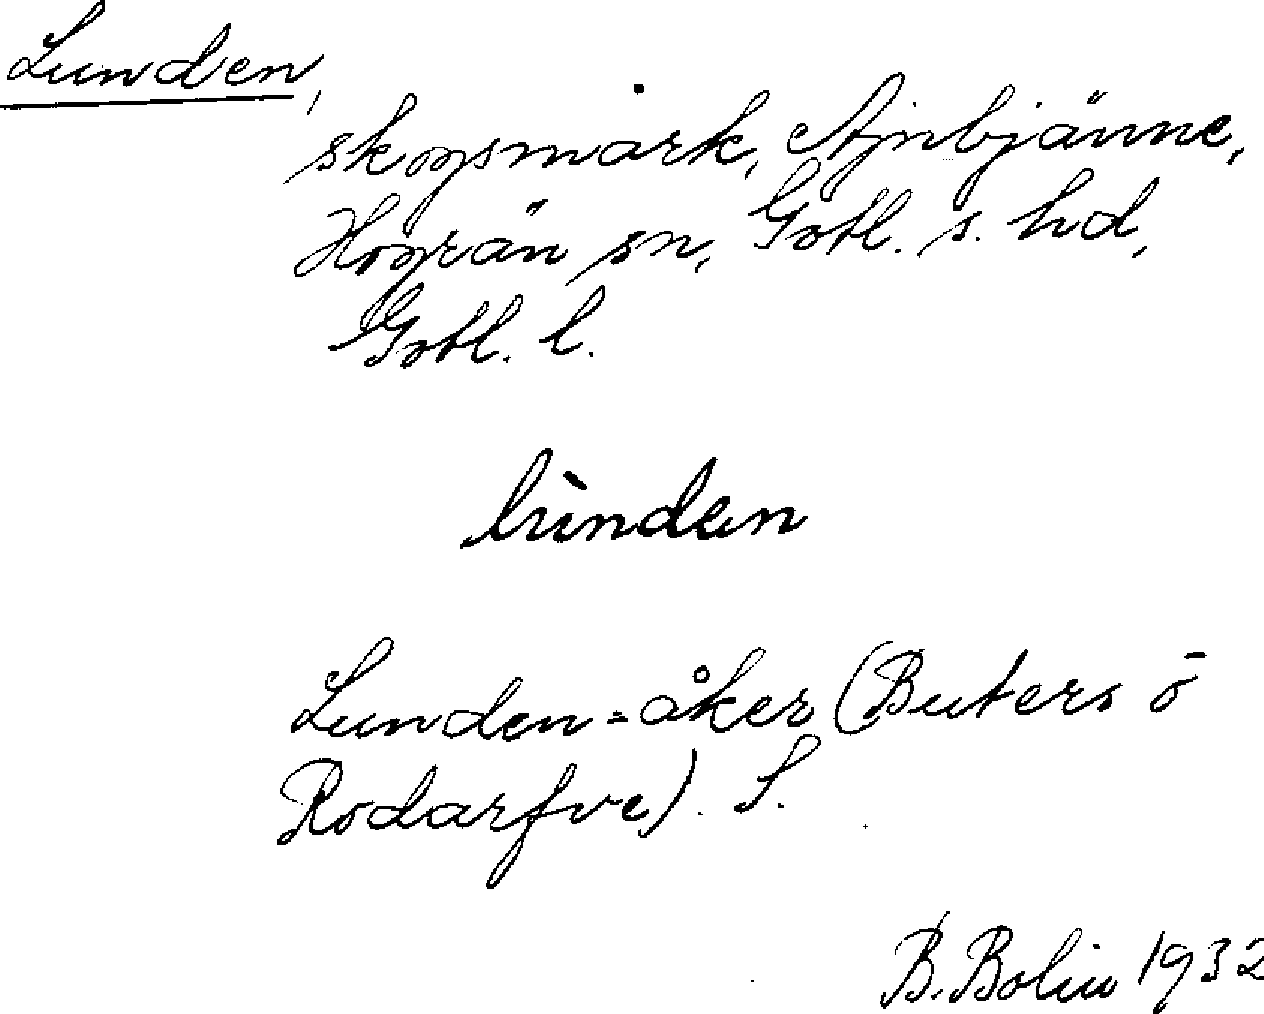 Lunden,
skogsmark, Ajnbjänne,
Hogrän sn, Gotl. s. hd,
Gotl. l.
lùnden
Lunden=åker (Buters ō
Rodarfve). S.
B. Bolin 1932